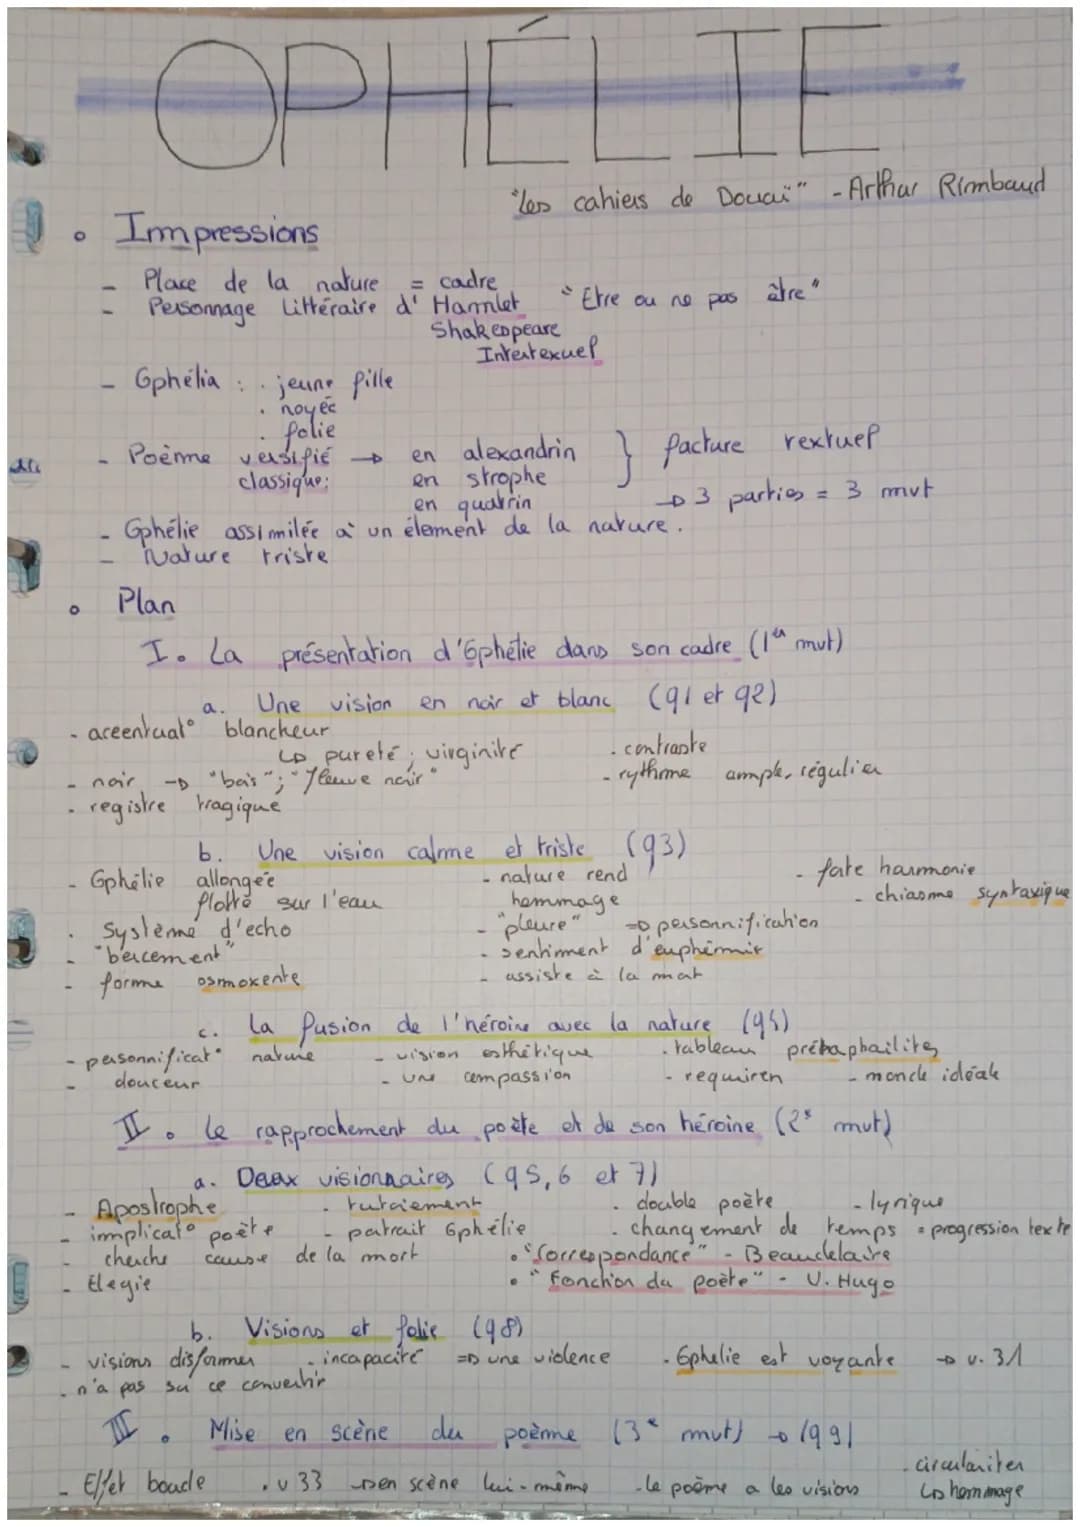 OPHÉLIE
"Les cahiers de Douai" - Arthur Rimbaud
• Impressions
- Place de la nature = cadre
- Personnage Littéraire d'Hamlet "Etre ou ne pas être"
Shakespeare
Intertexuel
- Ophélia : . jeune fille
. noyée
. folie
- Poème versifié → en alexandrin } facture rextuel
classique: en strophe
en quatrin → 3 parties = 3 mvt
- Ophélie assimilée à un élement de la nature.
- Nature triste
• Plan
I. La présentation d'Ophélie dans son cadre (1er mvt)
a. Une vision en noir et blanc (q1 et q2)
- aceentuat° blancheur
↳ pureté, virginité . contraste
- noir → "bois"; "fleuve noir" - rythme ample, régulier
- registre tragique
b. Une vision calme et triste (q3)
- Ophélie allongée - nature rend - forte harmonie
flotte sur l'eau hommage - chiasme syntaxique
. Système d'echo - "pleure" => personnification
- "bercement" - sentiment d'euphémi
- forme osmoxente - assiste à la mort
c. La fusion de l'héroine avec la nature (q4)
- personnificat° nature - vision esthétique . tableau
- douceur - une compassion - requiren - monde idéale
II. Le rapprochement du poète et de son héroine (2e mvt)
a. Deux visionnaires (q5, 6 et 7)
- Apostrophe . tutoiement . double poète - lyrique
- implicat° poète - portrait Ophélie . changement de temps = progression texte
- cherche cause de la mort • "Correspondance" - Beaudelaire
- Elegie • "Fonction du poète" - V. Hugo
b. Visions et folie (q8)
- visions disformer . incapacité => une violence . Ophelie est voyante → v. 31
- n'a pas su ce convertir
III. Mise en scène du poème (3e mvt) → (q9)
- Effet boucle . v 33 → en scène lui-même - le poème a les visions . circulariter
↳ hommage